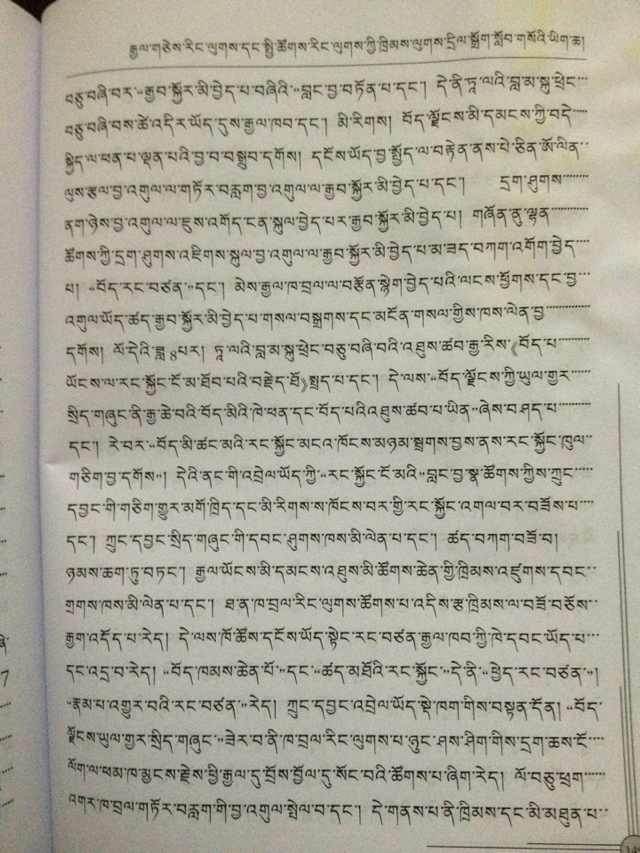 རྒྱལ་གཅེས་རིང་ལུགས་དང་སྤྱི་ཚོགས་རིང་ལུགས་ཀྱི་ཁྲིམས་ལུགས་དྲིལ་སྒྲོག་སློབ་གསོའི་ཡིག་ཆ།
བཅུ་བཞི་བར་“རྒྱབ་སྐྱོར་མི་བྱེད་པ་བཞིའི་”བླང་བྱ་བཏོན་པ་དང་། དེ་ནི་ཏཱ་ལའི་བླ་མ་སྐུ་ཕྲེང་
བཅུ་བཞི་བས་ཚེ་འདིར་ཡོད་དུས་རྒྱལ་ཁབ་དང་། མི་རིགས། བོད་ལྗོངས་མི་དམངས་ཀྱི་བདེ་
སྐྱིད་ལ་ཕན་པ་ལྡན་པའི་བྱ་བ་བསྒྲུབ་དགོས། དངོས་ཡོད་བྱ་སྤྱོད་ལ་བརྟེན་ནས་པེ་ཅིན་ཨོ་ལིན་
ལུས་རྩལ་བྱ་འགུལ་ལ་གཏོར་བརླག་བྱ་འགུལ་ལ་རྒྱབ་སྐྱོར་མི་བྱེད་པ་དང་། དྲག་ཤུགས་
ནག་ཉེས་བྱ་འགུལ་ལ་ཇུས་འགོད་ངན་སྐུལ་བྱེད་པར་རྒྱབ་སྐྱོར་མི་བྱེད་པ། གཞོན་ནུ་ལྷན་
ཚོགས་ཀྱི་དྲག་ཤུགས་འཇིགས་སྐུལ་བྱ་འགུལ་ལ་རྒྱབ་སྐྱོར་མི་བྱེད་པ་མ་ཟད་བཀག་འགོག་བྱེད་
པ། “བོད་རང་བཙན་”དང་། མེས་རྒྱལ་ཁ་བྲལ་ལ་བརྩོན་སྙེག་བྱེད་པའི་ལངས་ཕྱོགས་དང་བྱ་
འགུལ་ཡོད་ཚད་རྒྱབ་སྐྱོར་མི་བྱེད་པ་གསལ་བསྒྲགས་དང་མངོན་གསལ་གྱིས་ཁས་ལེན་བྱ་
དགོས། ལོ་དེའི་ཟླ་8པར། ཏཱ་ལའི་བླ་མ་སྐུ་ཕྲེང་བཅུ་བཞི་བའི་འཐུས་ཚབ་རྒྱ་རིས་《བོད་པ་
ཡོངས་ལ་རང་སྐྱོང་ངོ་མ་ཐོབ་པའི་བརྗེད་ཐོ》སྤྲད་པ་དང་། དེ་ལས་“བོད་ལྗོངས་ཀྱི་ཡུལ་གྱར་
སྲིད་གཞུང་ནི་རྒྱ་ཆེ་བའི་བོད་མིའི་ཁེ་ཕན་དང་བོད་པའི་འཐུས་ཚབ་པ་ཡིན་”ཞེས་བཤད་པ་
དང་། རེ་བར་“བོད་མི་ཚང་མའི་རང་སྐྱོང་མངའ་ཁོངས་མཉམ་སྦྲགས་བྱས་ནས་རང་སྐྱོང་ཁུལ་
གཅིག་བྱ་དགོས་”། དེའི་ནང་གི་འབྲེལ་ཡོད་ཀྱི་“རང་སྐྱོང་ངོ་མའི་”བླང་བྱ་སྣ་ཚོགས་ཀྱིས་ཀྲུང་
དབྱང་གི་གཅིག་གྱུར་མགོ་ཁྲིད་དང་མི་རིགས་ས་ཁོངས་བར་གྱི་རང་སྐྱོང་འགལ་བར་བཟོས་པ་
དང་། ཀྲུང་དབྱང་སྲིད་གཞུང་གི་དབང་ཤུགས་ཁས་མི་ལེན་པ་དང་། ཚད་བཀག་བཟོ་བ།
ཉམས་ཆག་ཏུ་བཏང་། རྒྱལ་ཡོངས་མི་དམངས་འཐུས་མི་ཚོགས་ཆེན་གྱི་ཁྲིམས་འཛུགས་དབང་
གྲགས་ཁས་མི་ལེན་པ་དང་། ཐ་ན་ཁ་བྲལ་རིང་ལུགས་ཚོགས་པ་འདིས་རྩ་ཁྲིམས་ལ་བཟོ་བཅོས་
རྒྱག་འདོད་པ་རེད། དེ་ལས་ཁོ་ཚོས་དངོས་ཡོད་སྟེང་རང་བཙན་རྒྱལ་ཁབ་ཀྱི་ཁེ་དབང་ཡོད་པ་
དང་འདྲ་བ་རེད། “བོད་ཁམས་ཆེན་པོ་”དང་“ཚད་མཐོའི་རང་སྐྱོང་”དེ་ནི་“ཕྱེད་རང་བཙན་”།
“རྣམ་པ་འགྱུར་བའི་རང་བཙན་”རེད། ཀྲུང་དབྱང་འབྲེལ་ཡོད་སྡེ་ཁག་གིས་བསྟན་དོན། “བོད་
ལྗོངས་ཡུལ་གྱར་སྲིད་གཞུང་”ཟེར་བ་ནི་ཁ་བྲལ་རིང་ལུགས་པ་ཉུང་ཤས་ཤིག་གིས་དྲག་ཆས་ངོ་
ལོག་ལ་ཕམ་ཁ་མྱངས་རྗེས་ཕྱི་རྒྱལ་དུ་བྲོས་བྱོལ་དུ་སོང་བའི་ཚོགས་པ་ཞིག་རེད། ལོ་བཅུ་ཕྲག་
འགར་ཁ་བྲལ་གཏོར་བརླག་གི་བྱ་འགུལ་སྤེལ་བ་དང་། དེ་གནས་པ་ནི་ཁྲིམས་དང་མི་མཐུན་པ་